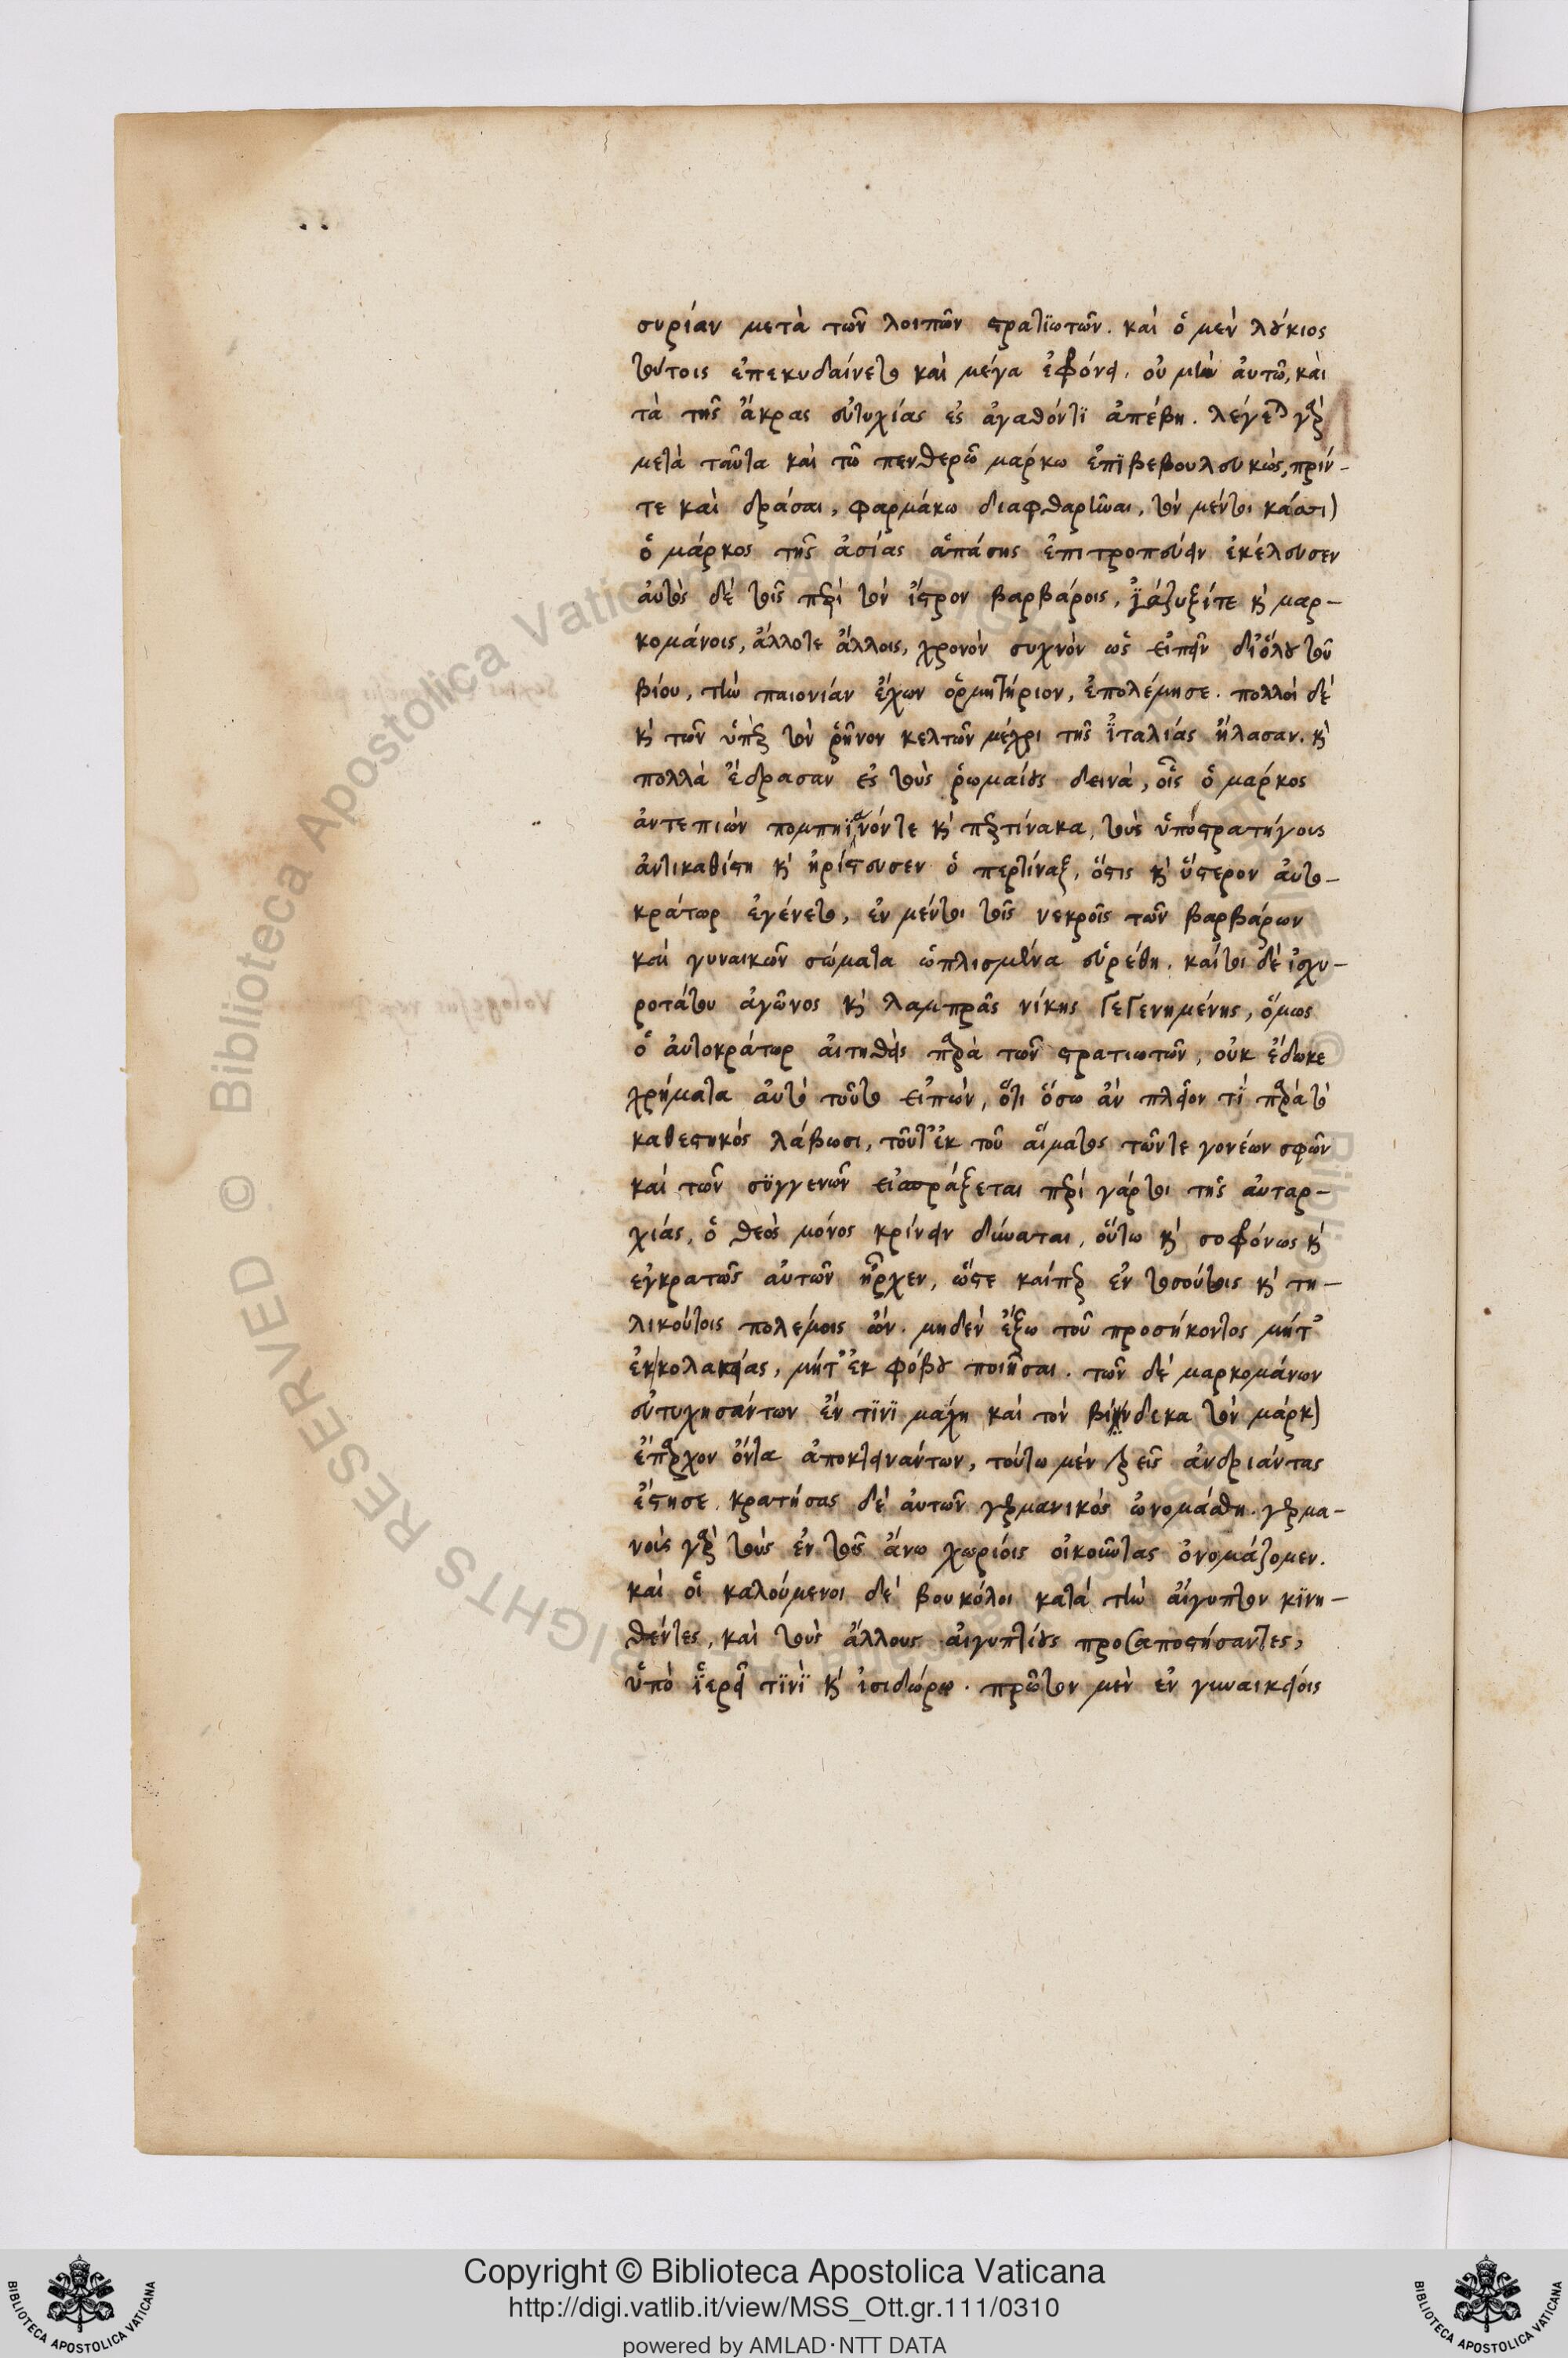 συρίαν μετὰ τῶν λοιπῶν στρατϊωτῶν. καὶ ὁ μὲν λούκιος
τούτοις ἐπεκυδαίνετο καὶ μέγα ἐφρόνει. οὐ μὴν αὐτῶ, καὶ
τὰ τῆς ἄκρας εὐτυχίας ἐς ἀγαθόντϊ ἀπέβη. λέγεται γὰρ
μετὰ ταῦτα καὶ τῶ πενθερῶ μάρκω ἐπϊβεβουλευκὼς, πρίν-
τε καὶ δράσαι, φαρμάκω διαφθαρῆναι, τὸν μέντοι κάσσιον
ὁ μάρκος τῆς ἀσίας ἁπάσης ἐπιτροπεύειν ἐκέλευσεν
αὐτὸς δὲ τοῖς περὶ τὸν ἴστρον βαρβάροις, ἰάζυξίτε καὶ μαρ-
κομάνοις, ἄλλοτε ἄλλοις, χρονὸν συχνὸν ὡς εἰπεῖν δι' ὅλου τοῦ
βίου, τὴν παιονίαν ἔχων ὁρμητήριον, ἐπολέμησε. πολλοὶ δὲ
καὶ τῶν ὑπὲρ τὸν ῥῆνον κελτῶν μέχρι τῆς ἰταλίας ἤλασαν. καὶ
πολλὰ ἔδρασαν ἐς τοὺς ῥωμαίους δεινὰ, οἷς ὁ μάρκος
ἀντεπιὼν πομπηϊανόντε καὶ περτίνακα, τοὺς ὑποστρατήγους
ἀντικαθίστη καὶ ἠρίστευσεν ὁ περτίναξ, ὅστις καὶ ὕστερον αὐτο-
κράτωρ ἐγένετο, ἐν μέντοι τοῖς νεκροῖς τῶν βαρβάρων
καὶ γυναικῶν σώματα ὡπλισμένα εὑρέθη. καίτοι δὲ ἰσχυ-
ροτάτου ἀγῶνος καὶ λαμπρᾶς νίκης γεγενημένης, ὅμως
ὁ αὐτοκράτωρ αἰτηθεὶς παρὰ τῶν στρατιωτῶν, οὐκ ἔδωκε
χρήματα αὐτὸ τοῦτο εἰπὼν, ὅτι ὅσω ἂν πλεῖον τϊ παρὰ τὸ
καθεστηκὸς λάβωσι, τοῦτ' ἐκ τοῦ αἵματος τῶντε γονέων σφῶν
καὶ τῶν συγγενῶν εἰσπράξεται περὶ γάρτοι τῆς αὐταρ-
χίας, ὁ θεὸς μόνος κρίνειν δύναται, οὕτω καὶ σοφρόνως καὶ
ἐγκρατῶς αὐτῶν ἦρχεν, ὥστε καίπερ ἐν τοσούτοις καὶ τη-
λικούτοις πολέμοις ὢν. μηδὲν ἔξω τοῦ προσήκοντος μήτ'
ἐκ κολακείας, μήτ' ἐκ φόβου ποιῆσαι. τῶν δὲ μαρκομάνων
εὐτυχησάντων ἔν τϊνϊ μάχη καὶ τὸν βίνδεκα τὸν μάρκον
ἔπαρχον ὄντα ἀποκτεινάντων, τούτω μὲν τρεῖς ἀνδριάντας
ἔστησε. κρατήσας δὲ αὐτῶν γερμανικὸς ὠνομάσθη. γερμα-
νοὺς γὰρ τοὺς ἐν τοῖς ἄνω χωρίοις οἰκοῦντας ὀνομάζομεν.
καὶ οἱ καλούμενοι δὲ βουκόλοι κατὰ τὴν αἴγυπτον κϊνη-
θέντες, καὶ τοὺς ἄλλους αἰγυπτίους προσαποστήσαντες,
ὑπὸ ἱερεῖ τϊνϊ καὶ ἰσιδώρω. πρῶτον μὲν ἐν γυναικείοις
Copyright © Biblioteca Apostolica Vaticana
http://digi.vatlib.it/view/MSS_Ott.gr.111/0310
powered by AMLAD·NTT DATA